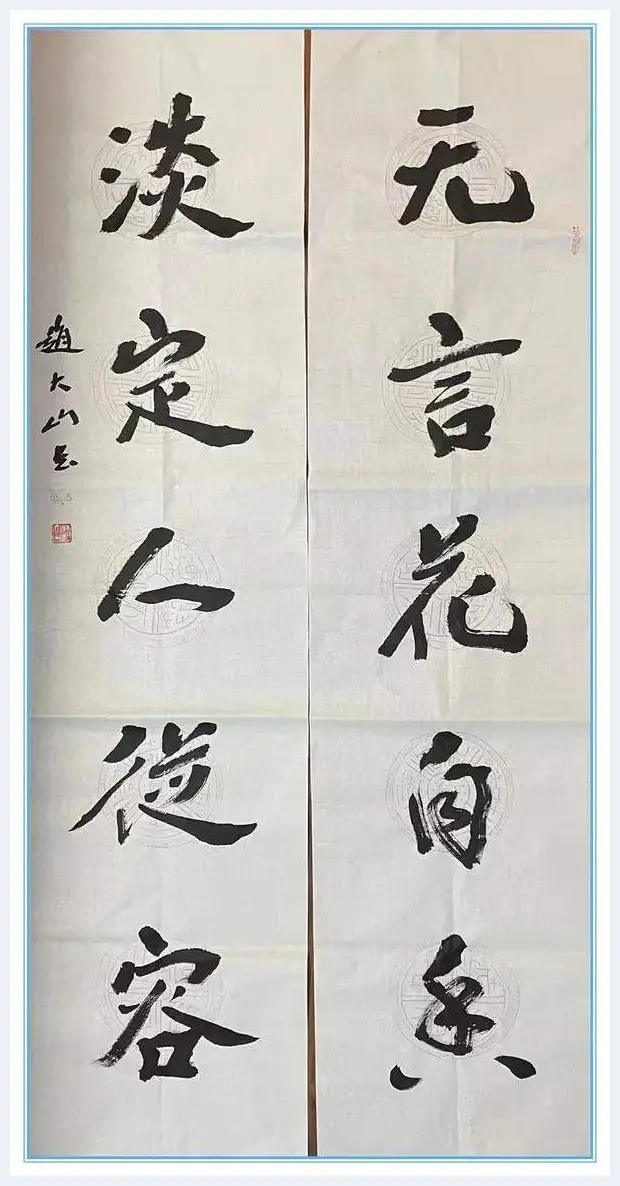 无言花自香
淡定人從容
趙大山書